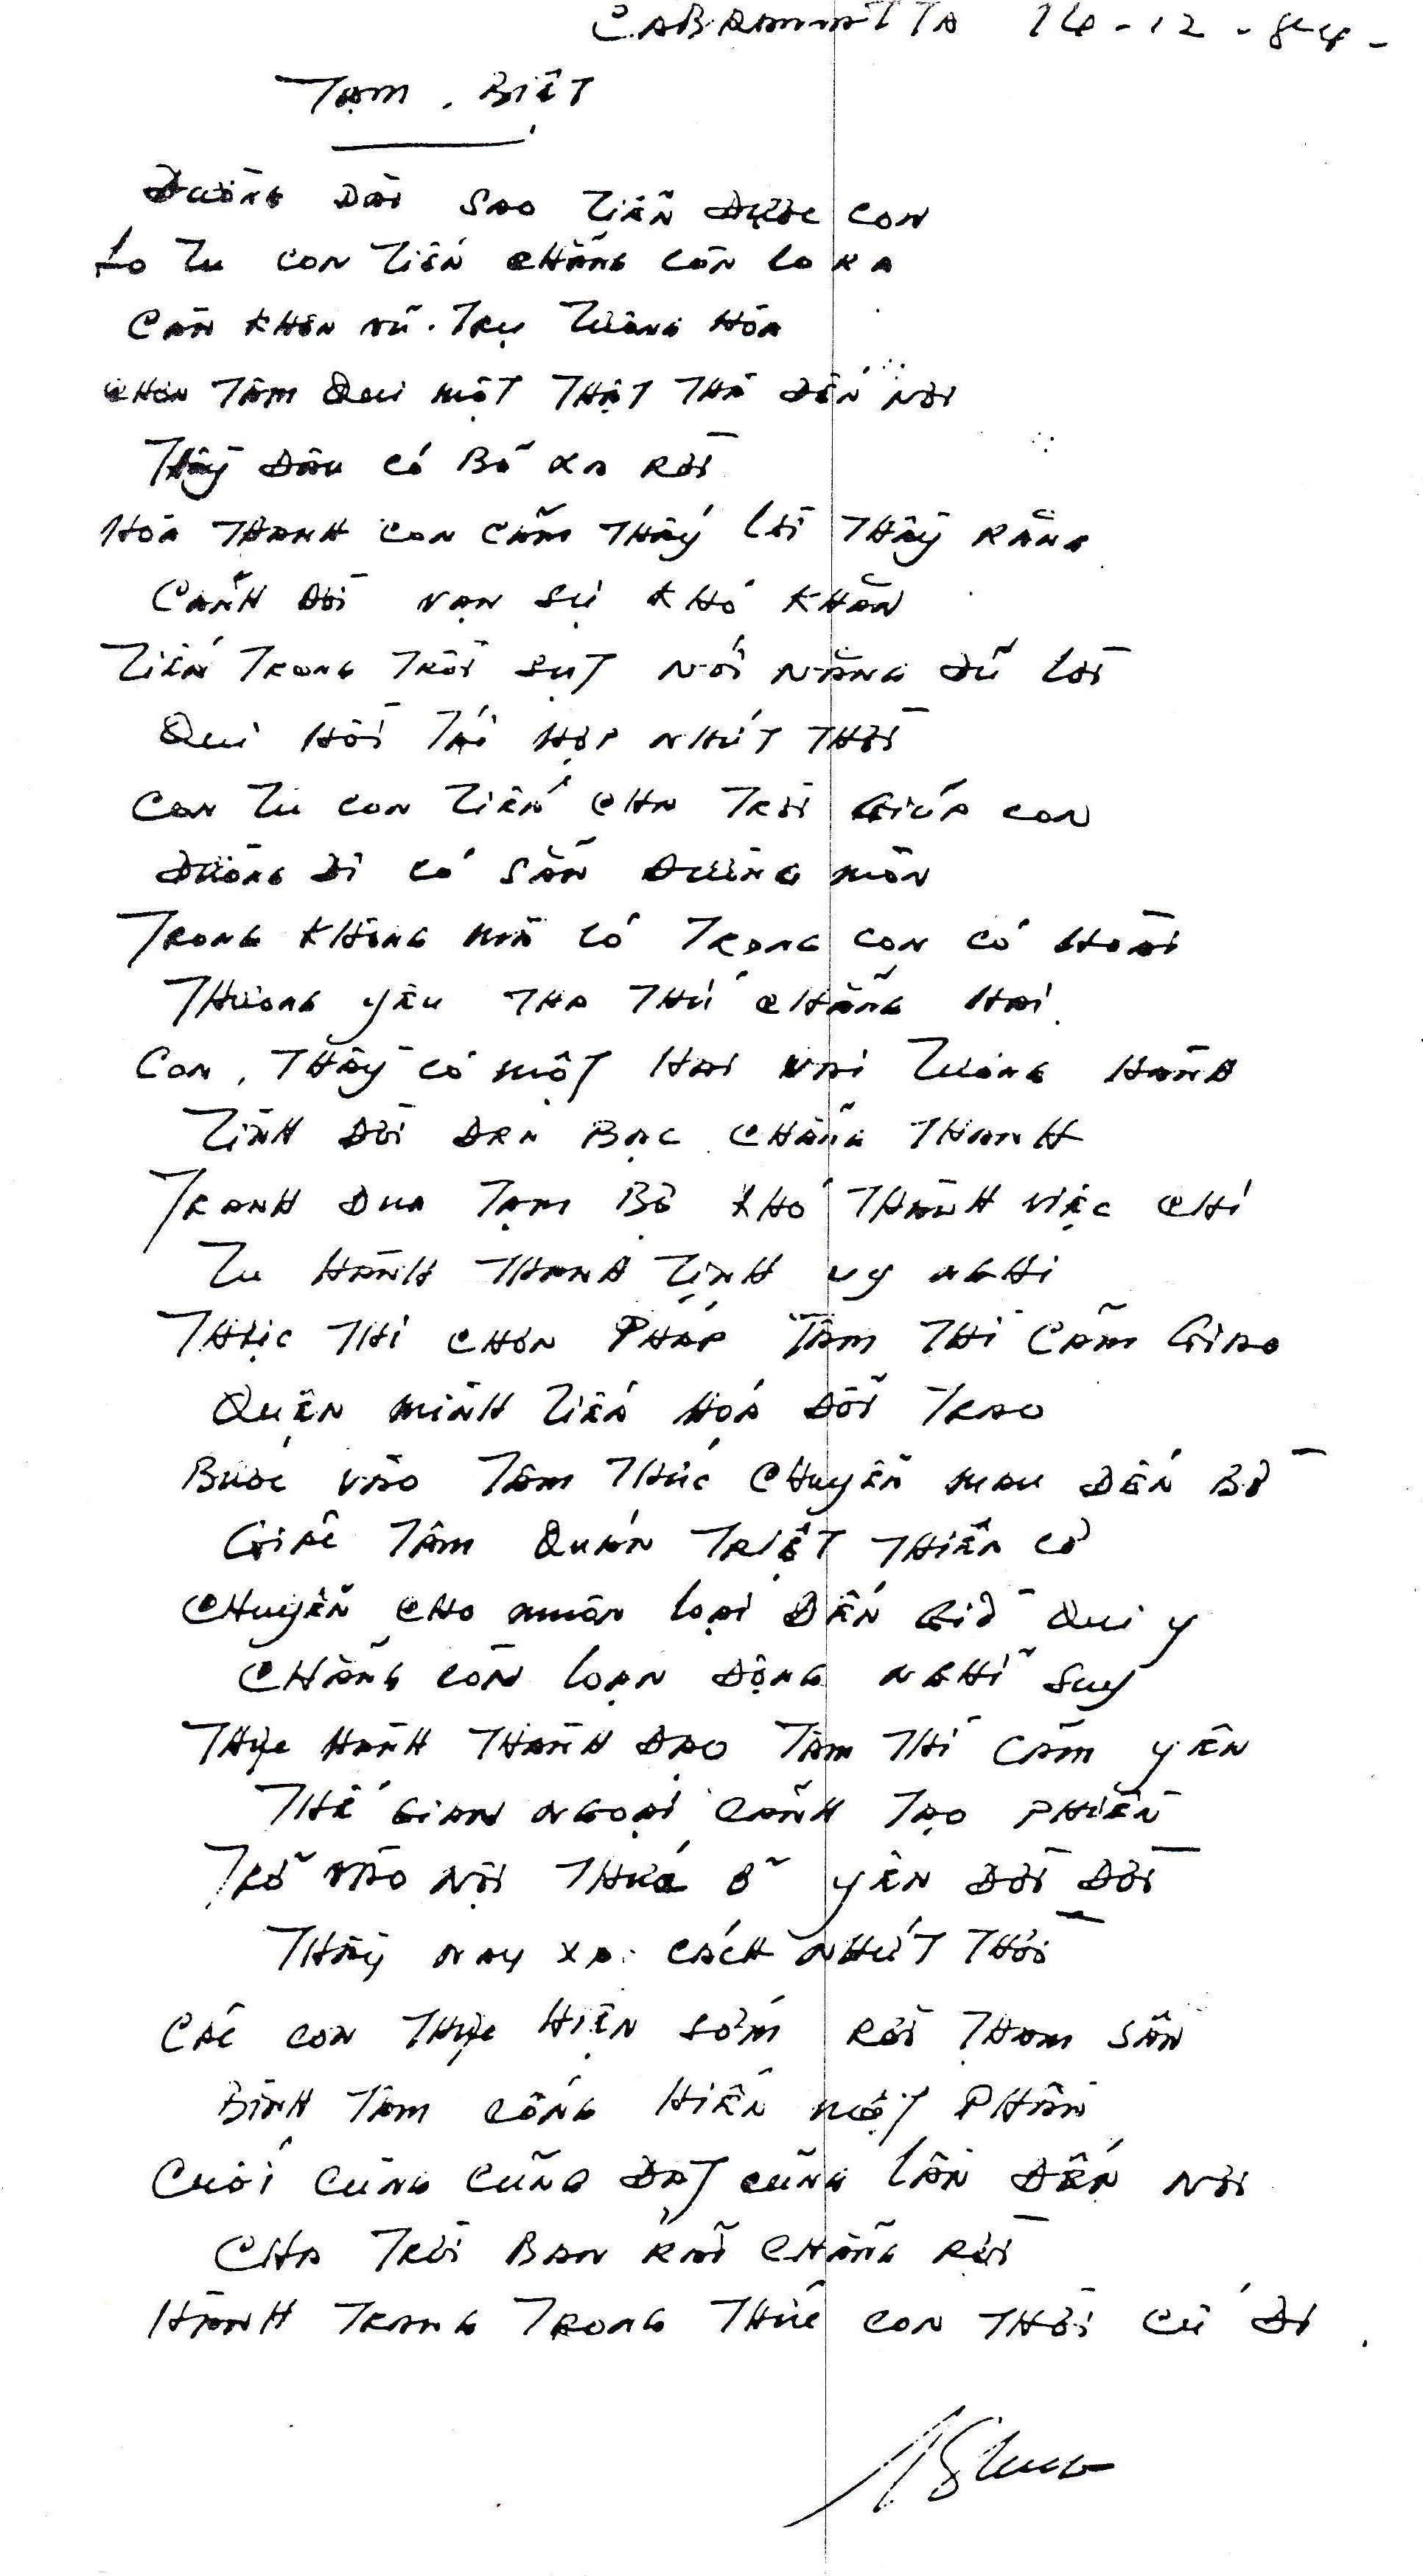 CABRAMATTA 14-12-84-
TẠM. BIỆT
ĐƯỜNG DÀI SAO TIỄN ĐƯỢC CON
LO TU CON TIẾN CHẲNG CÒN LO XA
CÀN KHÔN VŨ.TRỤ TƯƠNG HÒA
CHƠN TÂM QUI MỘT THẬT THÀ ĐẾN NƠI
THẦY ĐÂU CÓ BỎ XA RỜI
HÒA THANH CON CẢM THẤY LỜI THẦY RẰNG
CẢNH ĐỜI VẠN SỰ KHÓ KHĂN
TIẾN TRONG TRỒI SỤT NÓI NĂNG ĐỦ LỜI
QUI HỒI TÁI HỌP NHỨT THỜI
CON TU CON TIẾN CHA TRỜI GIÚP CON
ĐƯỜNG ĐI CÓ SẴN ĐƯỜNG MÒN
TRONG KHÔNG MÀ CÓ TRONG CON CÓ HOÀI
THƯƠNG YÊU THA THỨ CHẲNG HAI
CON, THẦY CÓ MỘT HAI VAI TƯƠNG HÀNH
TÌNH ĐỜI ĐEN BẠC CHẲNG THANH
TRANH ĐUA TẠM BỢ KHÓ THÀNH VIỆC CHI
TU HÀNH THANH TỊNH UY NGHI
THỰC THI CHƠN PHÁP TÂM THÌ CẢM GIAO
QUÊN MÌNH TIẾN HÓA ĐỔI TRAO
BƯỚC VÀO TÂM THỨC CHUYỂN MAU ĐẾN BỜ
GIÁC TÂM QUÁN TRIỆT THIÊN CƠ
CHUYỂN CHO NHƠN LOẠI ĐẾN GIỜ QUI Y
CHẲNG CÒN LOẠN ĐỘNG NGHĨ SUY
THỰC HÀNH THÀNH ĐẠO TÂM THÌ CẢM YÊN
THẾ GIAN NGOẠI CẢNH TẠO PHIỀN
TRỞ VÀO NỘI THỨC Ở YÊN ĐỜI ĐỜI
THẦY NAY XA CÁCH NHỨT THỜI
CÁC CON THỰC HIỆN SỚM RỜI THAM SÂN
BÌNH TÂM CỐNG HIẾN MỘT PHẦN
CUỐI CÙNG CŨNG ĐẠT CŨNG LẦN ĐẾN NƠI
CHA TRỜI BAN RẢI CHẲNG RỜI
HÀNH TRANG TRONG THỨC CON THỜI CỨ ĐI.